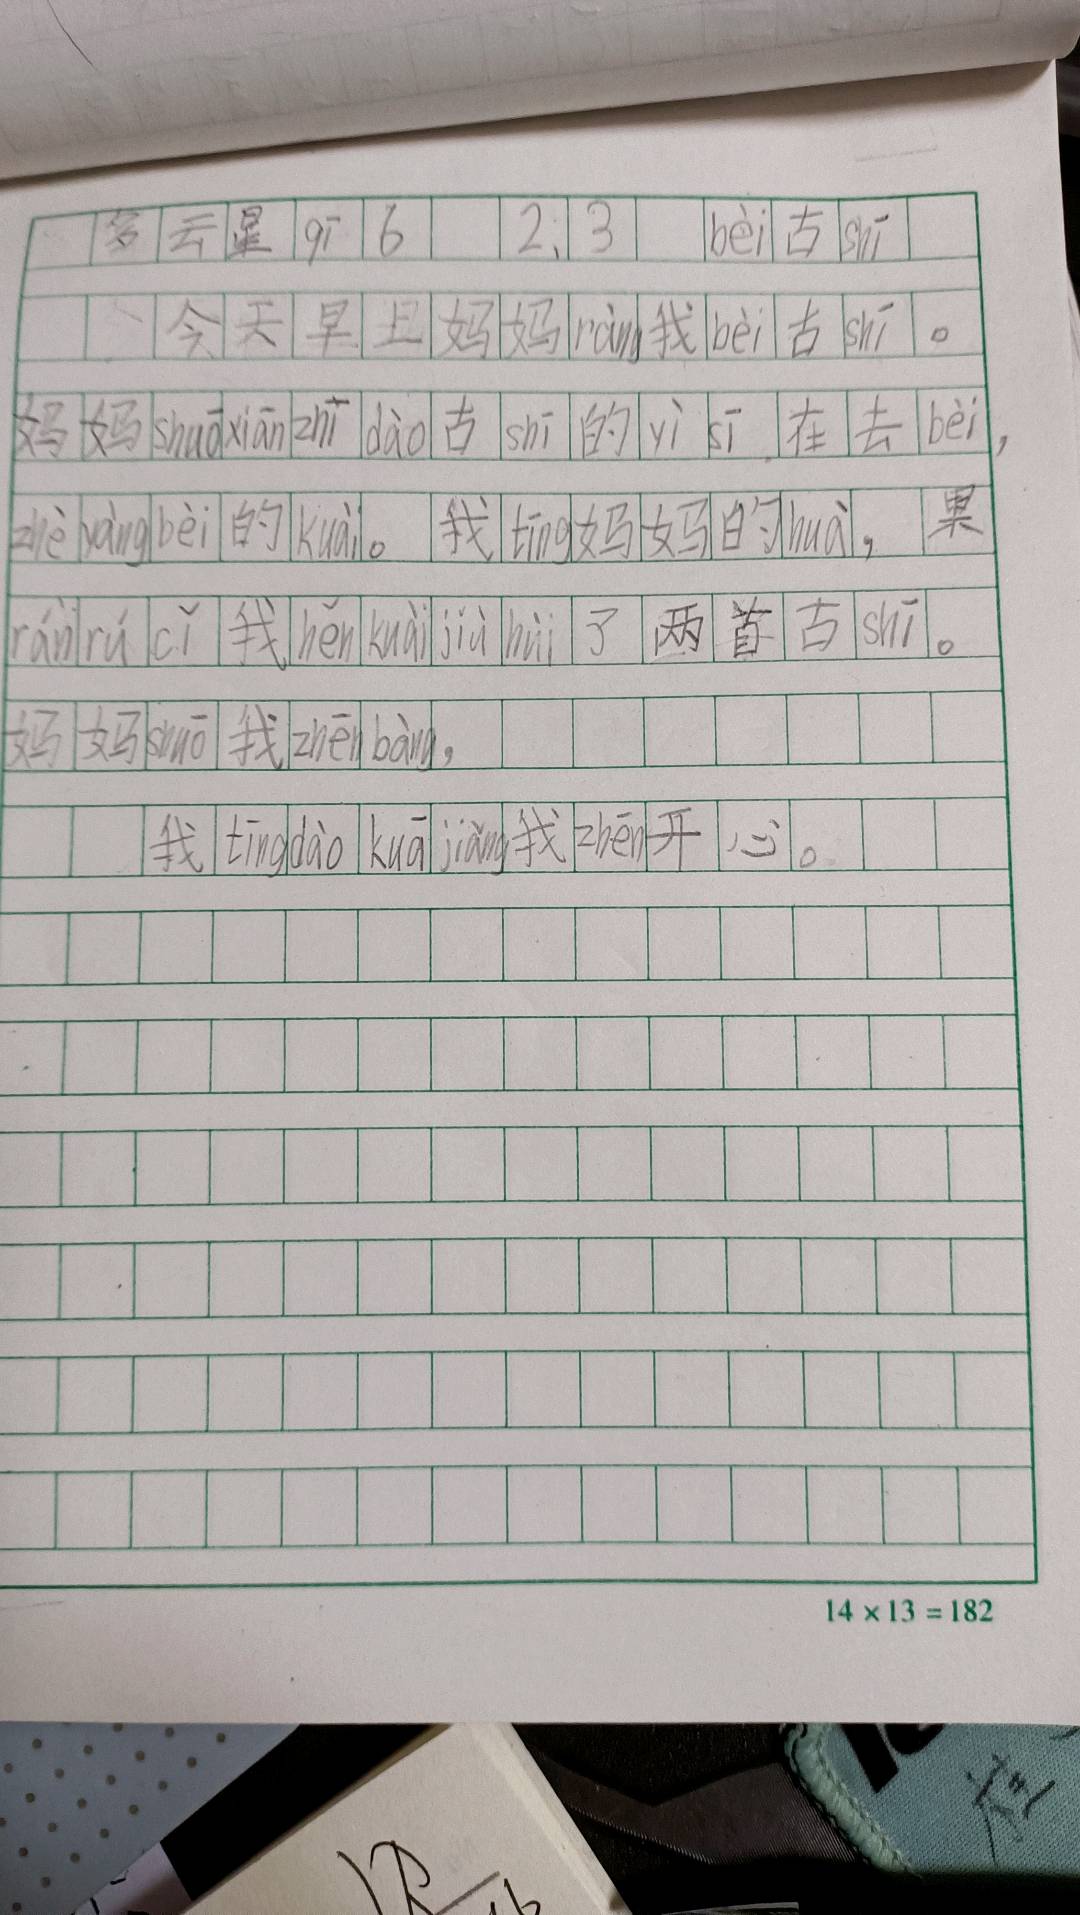 多云星qī6 2.3 bèi古shī
今天早上妈妈ràng我bèi古shī。
妈妈shuōxiānzhīdào古shī的yìsī.在去bèi,
zhèyàngbèi的kuài。我tīng妈妈的huà,果
ránrúcǐ我hěnkuàijiùhùi了两首古shī。
妈妈shuō我zhēnbàng,
我tīngdàokuājiǎng我zhēn开心。
14×13=182